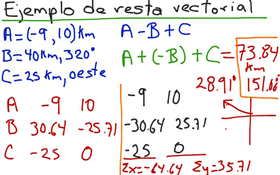 Ejemplo de resta vectorial
A=(-9,10)km
B=40km,320°
C=25 Km,oeste
A-B+C
A+(-B)+C=73.84
km
28.91° 151.08°
A -9 10
B 30.64 -25.71
C -25 0
-9 10
-30.64 25.71
-25 0
Σx=-64.64 Σy=35.71